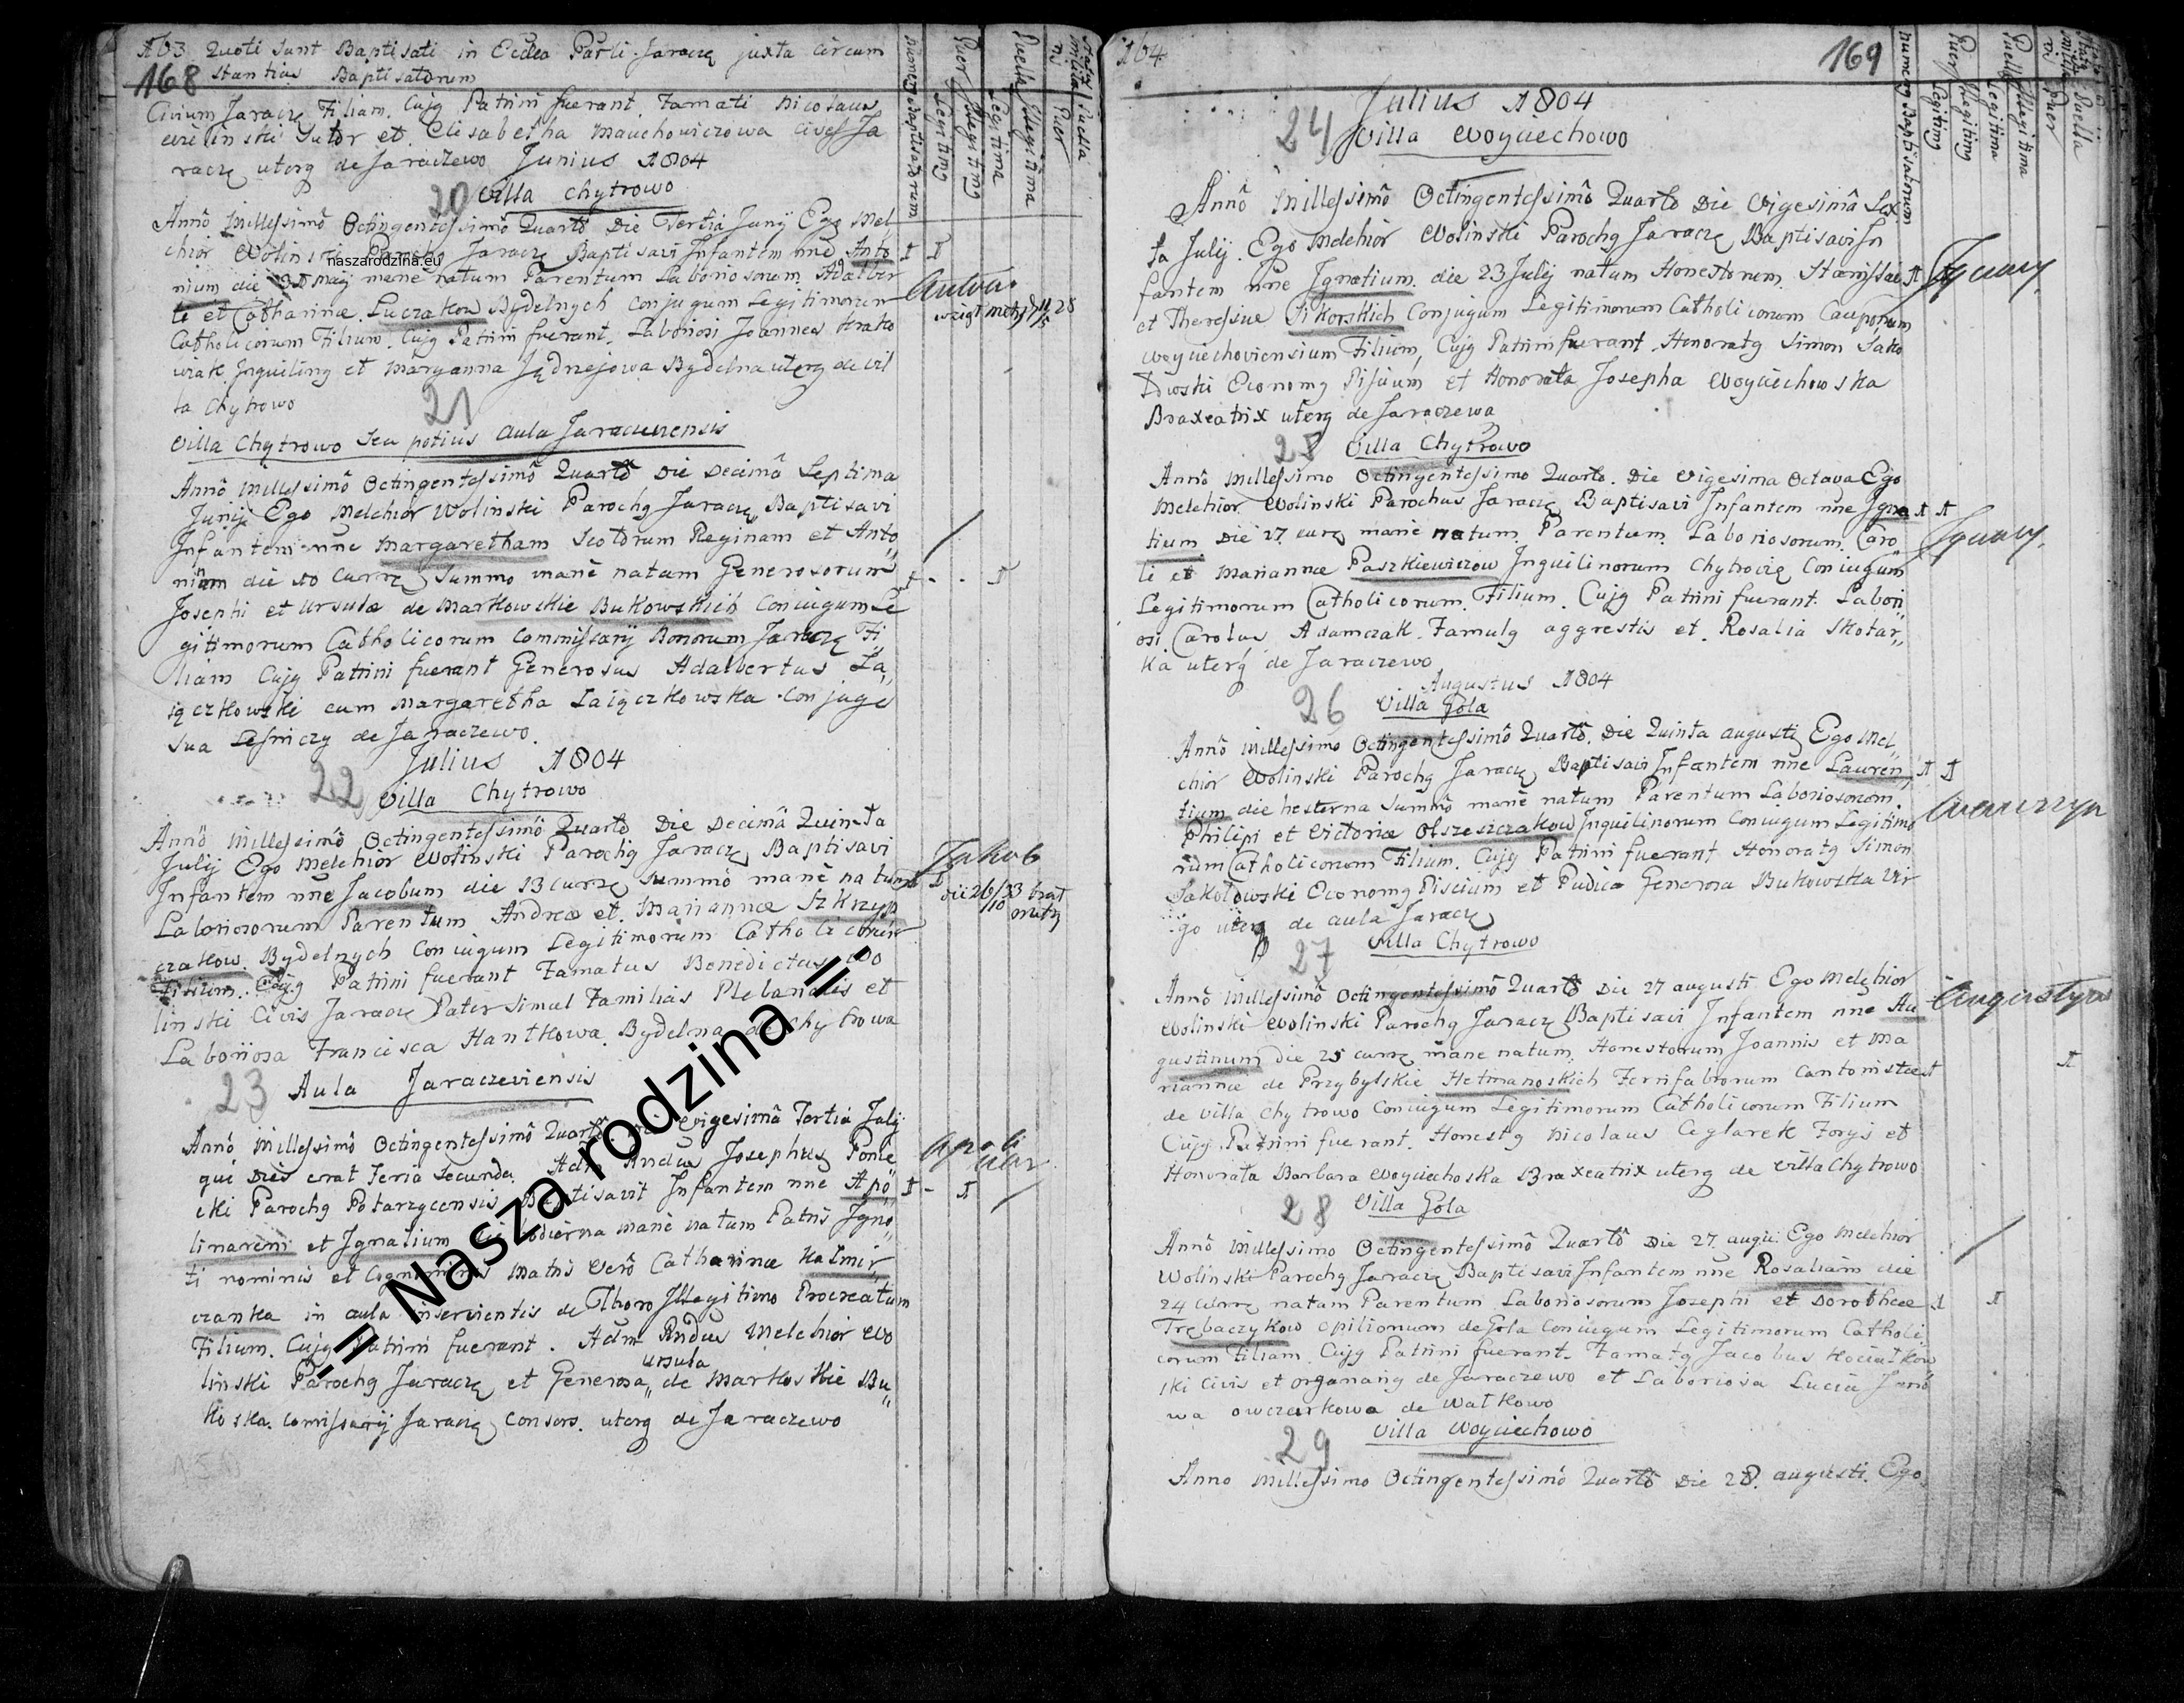 163 Quoti sunt Baptisati in Ecclea Parli Jaracz juxta circum
168 stantias Baptisatorum
Numerg Baptisatorum
Puer Legitimg
Illegitimg
Puella Legitima
Illegitima
Puer
Puella
Civium Jaracz Filiam. Cujg Patrini fuerant Famati Nicolaus
Sutor et Elisabetha Mauchowiczowa cives Ja
racz uterg de Jaraczewo Junius 1804
20 Villa Chytrowo
Annô Millessimô Octingentessimô Quartô Die Tertia Junij Ego Mel
chior Wolinski Parochg Jaracz Baptisavi Infantem nne Anto
naszarodzina.eu
nium die Maij mane natum Parentum Laboriosorum Adalber
ti et Catharinæ Luczakow Bydelnych Conjugum Legitimorum
Catholicorum Filium. Cujg Patrini fuerant. Laboriosi Joannes Krako
wiak Inquiling et Maryanna Jędrzejowa Bydelna uterg de vil
la Chytrowo
21
Villa Chytrowo seu potius Aula Jaraczewensis
Annô Millessimô Octingentessimô Quartô Die Decimâ Septima
Junij Ego Melchior Wolinski Parochg Jaracz Baptisavi
Infantem nne Margaretham Scotorum Reginam et Anto
niam die 10 Curr Summo manè natam Generosorum
Josephi et Ursulæ de Markowskie Bukowskich Conjugum Le
gitimorum Catholicorum Commissarij Bonorum Jaracz Fi
liam Cujg Patrini fuerant Generosus Adalbertus Ła
iączkowski cum Margaretha Łaiączkowska Conjuge
sua Leśniczy de Jaraczewo.
Julius 1804
22 Villa Chytrowo
Annô Millessimô Octingentessimô Quartô Die Decimâ Quinta
Julij Ego Melchior Wolinski Parochg Jaracz Baptisavi
Infantem nne Jacobum die 13 curr summô manè natum
Laboriosorum Parentum Andreæ et Mariannæ Szkrzyp
czakow. Bydelnych Conjugum Legitimorum Catholicorum
Filium. Cujg Patrini fuerant Famatus Benedictus Wo
linski Civis Jaracz Pater simul Familias Plebanalis et
Laboriosa Francisca Hantkowa. Bydelna de Chytrowa
23 Aula Jaraczeviensis
Annô Millessimô Octingentessimô Quartô Vigesimâ Tertia Julij
qui Dies erat Feria Secunda. Adm Rndus Josephus Ponie
cki Parochg Potarzycensis Baptisavit Infantem nne Apo
linarem et Ignatium hodierna manè natum Patris Igno
ti nominis et Cognominis Matris verò Catharinæ Kazmir
czanka in aula inservientis de Thoro Illegitimo Procreatum
Filium. Cujg Patrini fuerant. Adm Rndus Melchior Wo
linski Parochg Jaracz et Generosa Ursula de Markoskie Bu
koska. Comissarij Jaracz Consors. uterg de Jaraczewo
Antoni
Jakob
Apolinar
-= Nasza rodzina =-
164
169
Numerg Baptisatorum
Puer Legitimg
Illegitimg
Puella Legitima
Illegitima
Puer
Puella
Julius 1804
24 Villa Woyciechowo
Annô Millessimô Octingentessimô Quarto Die Vigesimâ Sex
ta Julij. Ego Melchior Wolinski Parochg Jaracz Baptisavi In
fantem nne Ignatium. die 23 Julij natum Honestorum. Stanislai
et Theressiæ Sikorskich Conjugum Legitimorum Catholicorum Cauponum
Woyciechoviensium Filium, Cujg Patrini fuerant Honoratg Simon Sako
Economg Piscium et Honorata Josepha Woyciechowska
Braxeatrix uterg de Jaraczewa
25 Villa Chytrowo
Annô Millessimo Octingentessimo Quarto. Die Vigesima Octava Ego
Melchior Wolinski Parochus Jaracz Baptisavi Infantem nne Igna
tium Die 27 curr manè natum Parentum Laboriosorum Caro
li et Mariannæ Paszkiewiczow Inquilinorum Chytrowie Conjugum
Legitimorum Catholicorum. Filium. Cujg Patrini fuerant. Labori
osi Carolus Adamczak Famulg aggrestis et Rosalia Skotar
ka uterg de Jaraczewo
Augustus 1804
26 Villa Gola
Annô Millessimo Octingentessimô Quartô. Die Quinta augusti Ego Mel
chior Wolinski Parochg Jaracz Baptisavi Infantem nne Lauren
tium die hesterna summô manè natum Parentum Laboriosorum.
Philipi et Victoriæ Olszeszczakow Inquilinorum Conjugum Legitimo
rum Catholicorum Filium. Cujg Patrini fuerant Honoratg Simon
Sakołowski Economg Piscium et Pudica Generosa Bukowska Vir
go uterg de aula Jaracz
27 Villa Chytrowo
Annô Millessimô Octingentessimô Quartô Die 27 augusti Ego Melchior
Wolinski Wolinski Parochg Jaracz Baptisavi Infantem nne Au
gustinum die 25 curr mane natum. Honestorum Joannis et Ma
riannæ de Przybylskie Hetmanoskich Ferrifabrorum Cantonistæ
de villa Chytrowo Conjugum Legitimorum Catholicorum Filium
Cujg Patrini fuerant. Honestg Nicolaus Ceglarek Forys et
Honorata Barbara Woyciechoska Braxeatrix uterg de Villa Chytrowo
28 Villa Gola
Annô Millessimo Octingentessimô Quartô Die 27 augu: Ego Melchior
Wolinski Parochg Jaracz Baptisavi Infantem nne Rosaliam die
24 curr natam Parentum Laboriosorum Josephi et Dorotheæ
Trębaczykow Opilionum de Gola Conjugum Legitimorum Catholi
corum Filiam Cujg Patrini fuerant. Famatg Jacobus
ski Civis et organarg de Jaraczewo et Laboriosa Lucia
wa Owczarkowa de Watkowo
29 Villa Woyciechowo
Anno Millessimo Octingentessimô Quartô Die 28. augusti. Ego
Ignacy
Ignacy
Wawrzyn
Augustyn